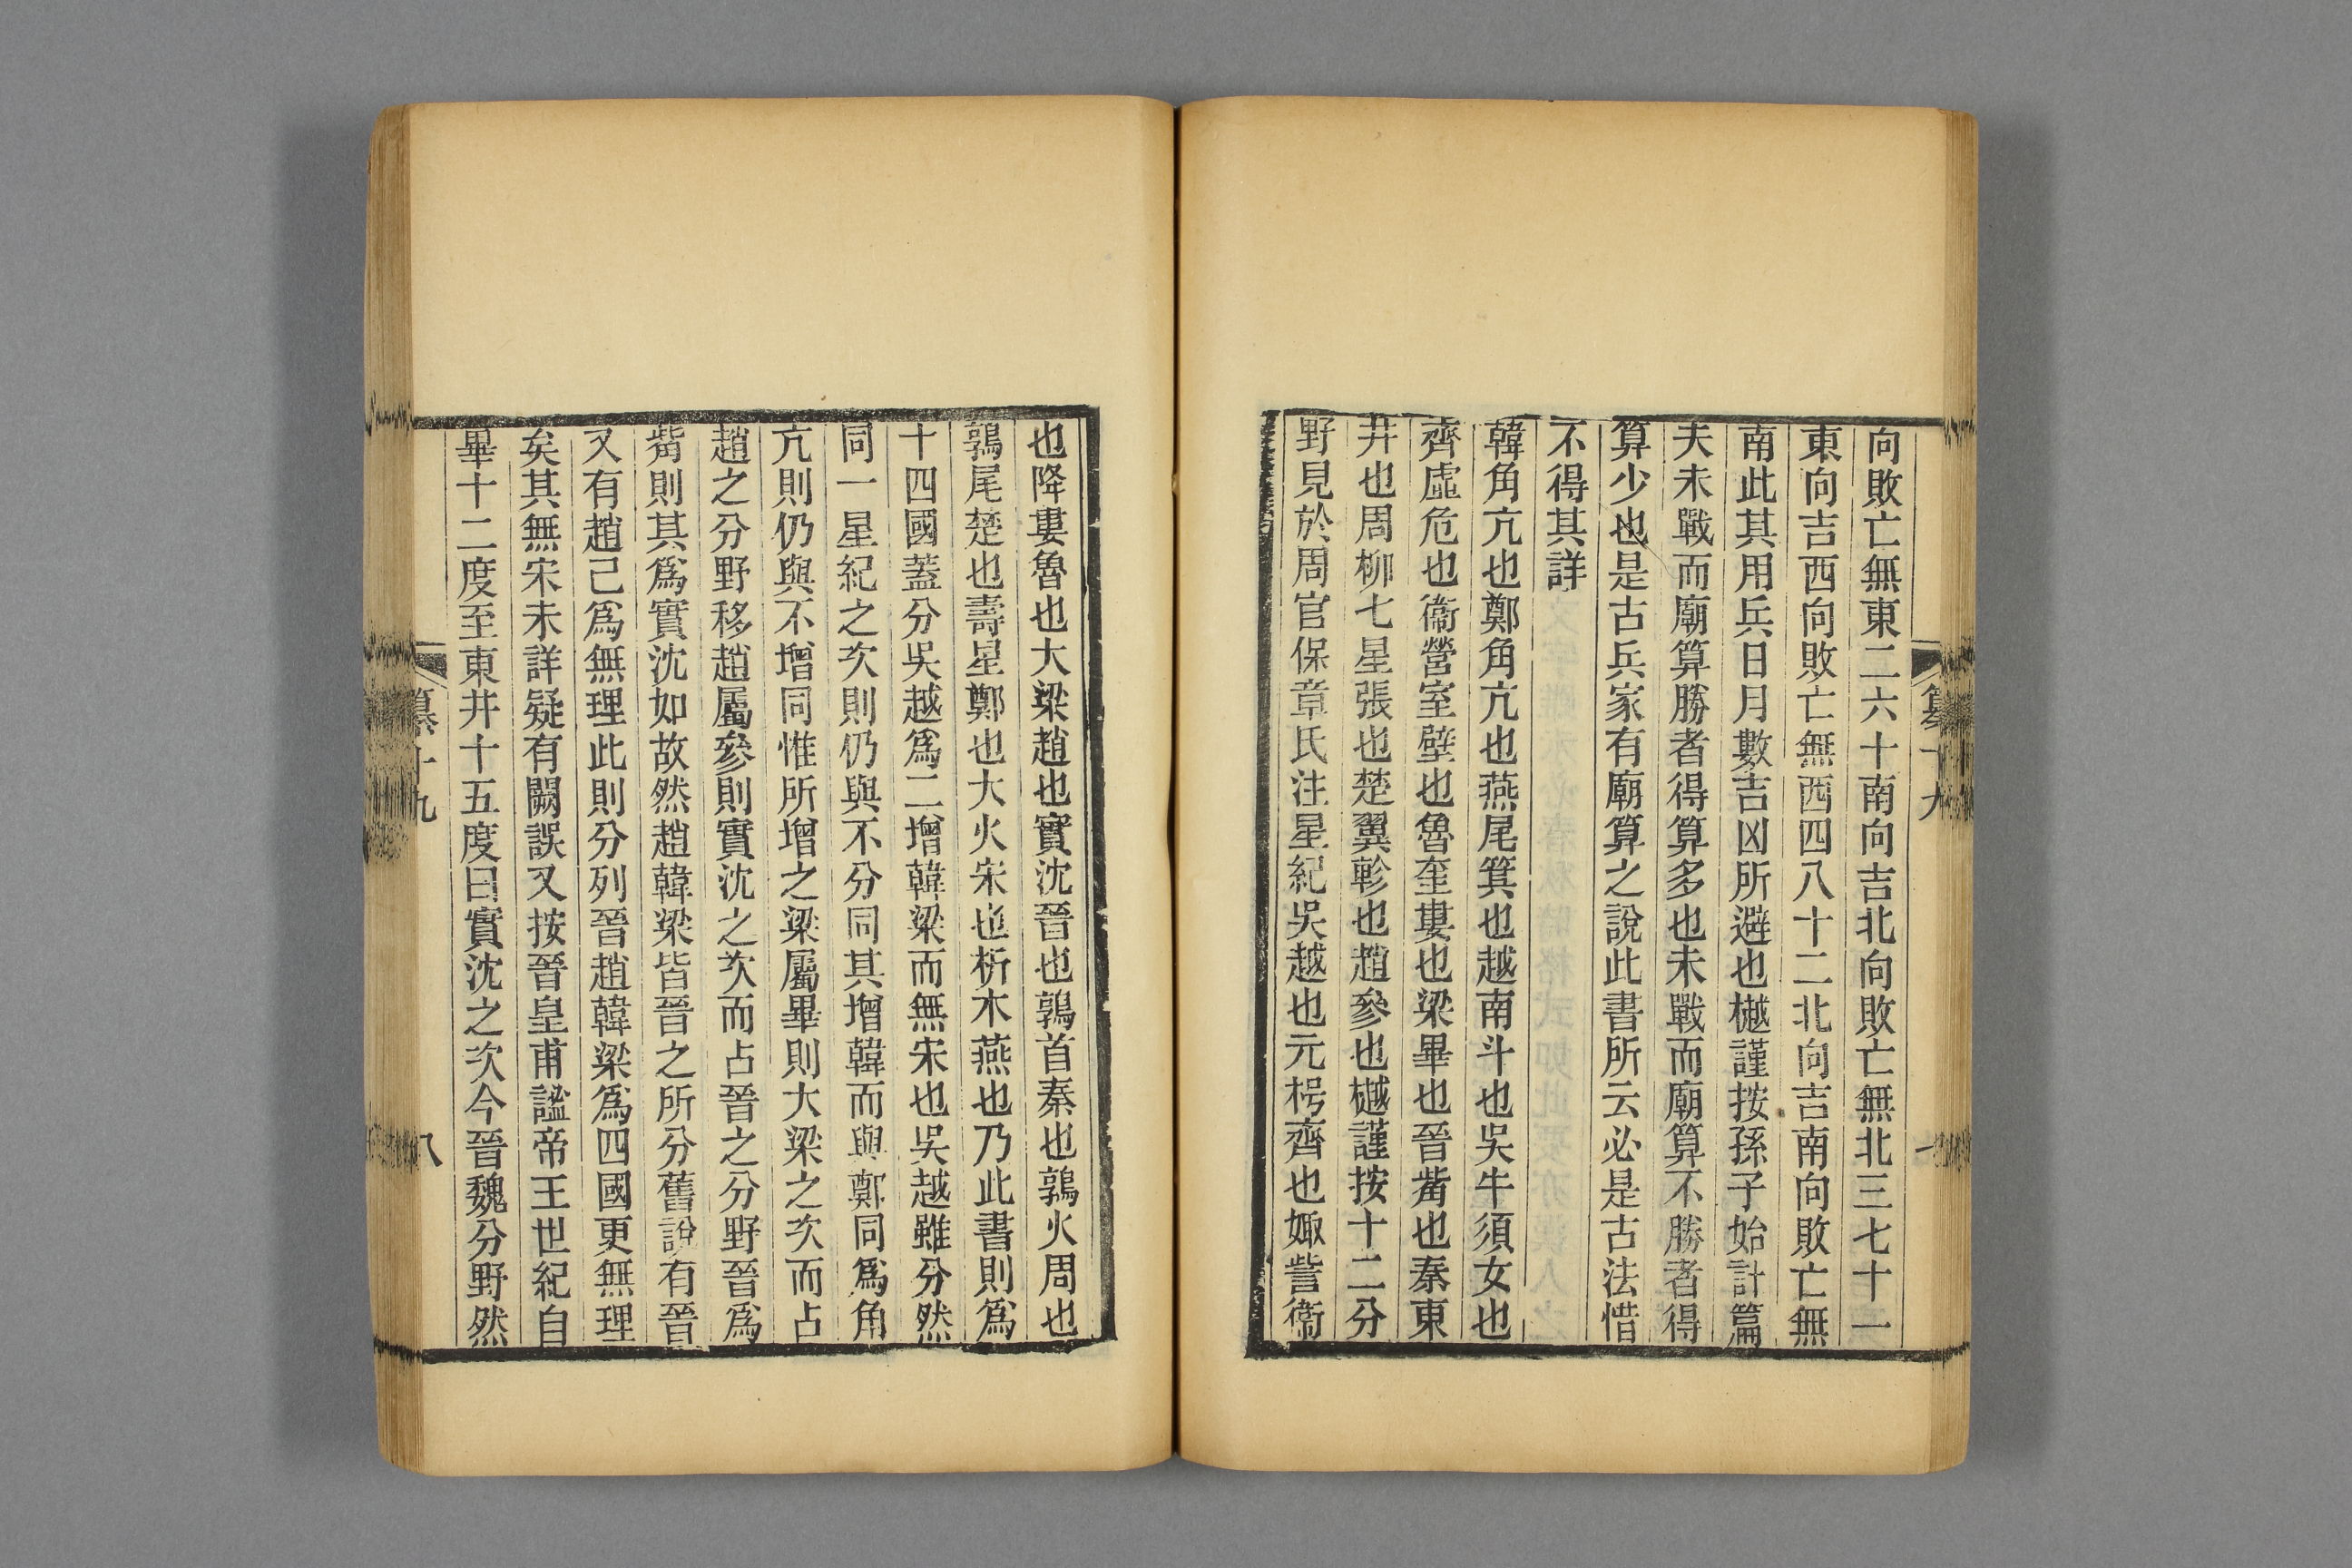 向敗亡無東二六十南向吉北向敗亡無北三七十一
東向吉西向敗亡無西四八十二北向吉南向敗亡無
南此其用兵日月數吉凶所避也樾謹按孫子始計篇
夫未戰而廟算勝者得算多也未戰而廟算不勝者得
算少也是古兵家有廟算之說此書所云必是古法惜
不得其詳
韓角亢也鄭角亢也燕尾箕也越南斗也吳牛須女也
齊虛危也衞營室壁也魯奎婁也梁畢也晉觜也秦東
井也周柳七星張也楚翼軫也趙參也樾謹按十二分
野見於周官保章氏注星紀吳越也元枵齊也娵訾衞
纂十九
七
也降婁魯也大梁趙也實沈晉也鶉首秦也鶉火周也
鶉尾楚也壽星鄭也大火宋也析木燕也乃此書則爲
十四國蓋分吳越爲二增韓梁而無宋也吳越雖分然
同一星紀之次則仍與不分同其增韓而與鄭同爲角
亢則仍與不增同惟所增之梁屬畢則大梁之次而占
趙之分野移趙屬參則實沈之次而占晉之分野晉爲
觜則其爲實沈如故然趙韓梁皆晉之所分舊說有晉
又有趙已爲無理此則分列晉趙韓梁爲四國更無理
矣其無宋未詳疑有闕誤又按晉皇甫謐帝王世紀自
畢十二度至東井十五度曰實沈之次今晉魏分野然
纂十九
八